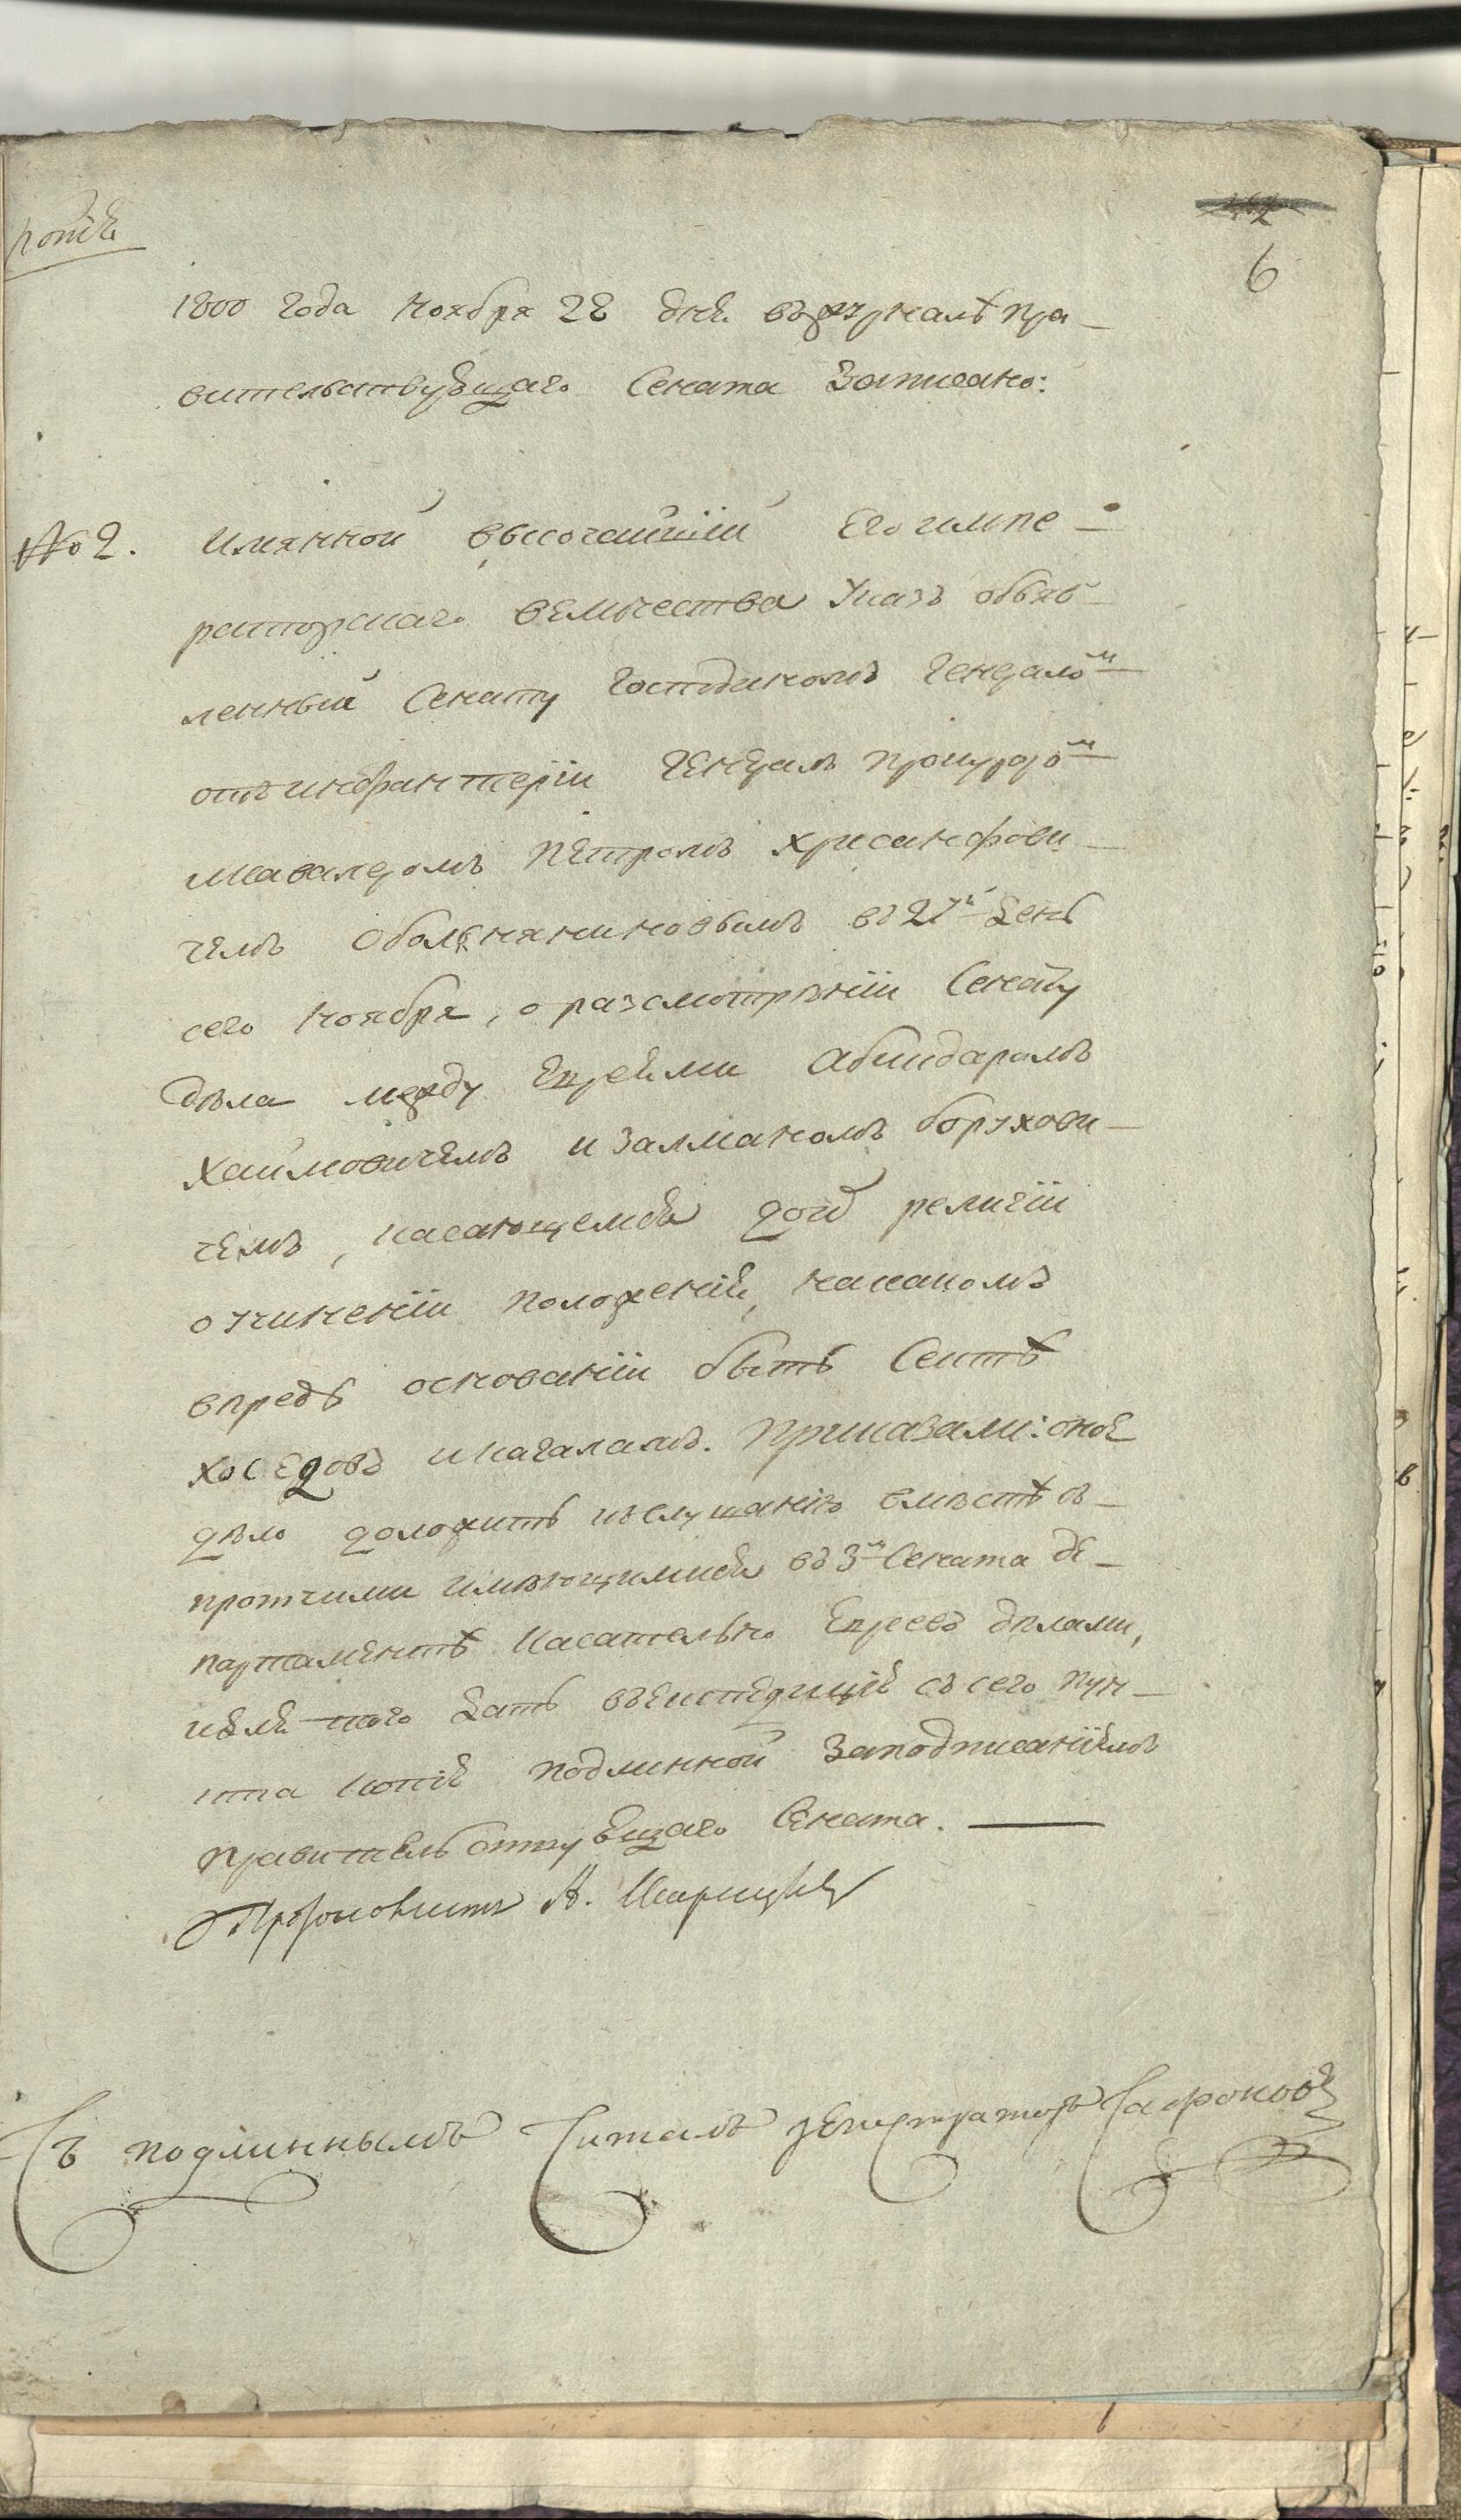 копія
6
1800 года ноября 28 дня въ журналѣ пра-
вительствующаго Сената записано:
№ 2. Имянной высочайшій Его импе-
раторскаго величества указъ объяв-
ленный Сенату Господиномъ Генераломъ
отъ инфантеріи Генералъ прокуроромъ
икавалеромъ Петромъ Хрисанфови-
чемъ Обольяниновымъ въ 27й день
сего ноября, о разсмотрѣніи Сенату
дѣла между Евреями Абигдаромъ
Хаимовичемъ и Залманомъ Борухови-
чемъ, касающемся до их религіи
о учиненіи положенія, накакомъ
впредь основаніи быть Сектѣ
Хоседовъ икагаламъ. Приказали: оное
дѣло доложить къ слушанію вмѣстѣ съ-
протчими имѣющимися въ 3м Сената де-
партаментѣ касательно Евреевъ дѣлами,
идля того дать въ Експедицію съ сего пун-
кта копію подлинной заподписаніемъ
Правительствующаго Сената.
Протоколистъ А.
Съ подлиннымъ читалъ регистраторъ Сафоновъ